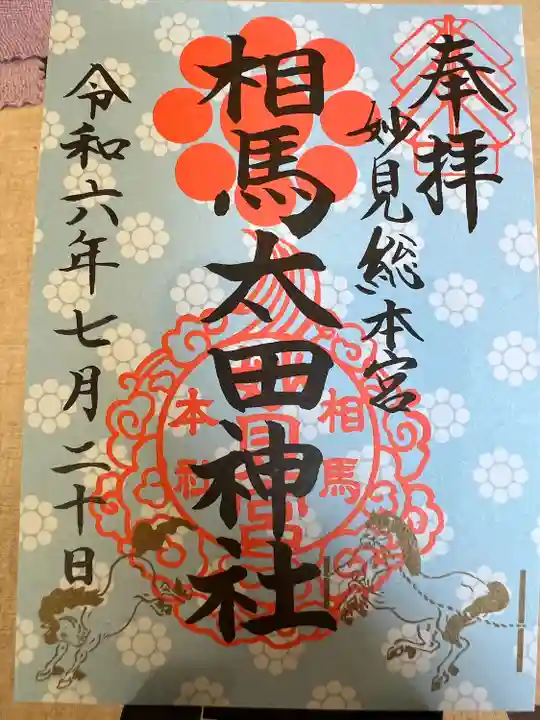 奉拝
妙見総本宮
相馬太田神社
相馬
本社
令和六年七月二十日